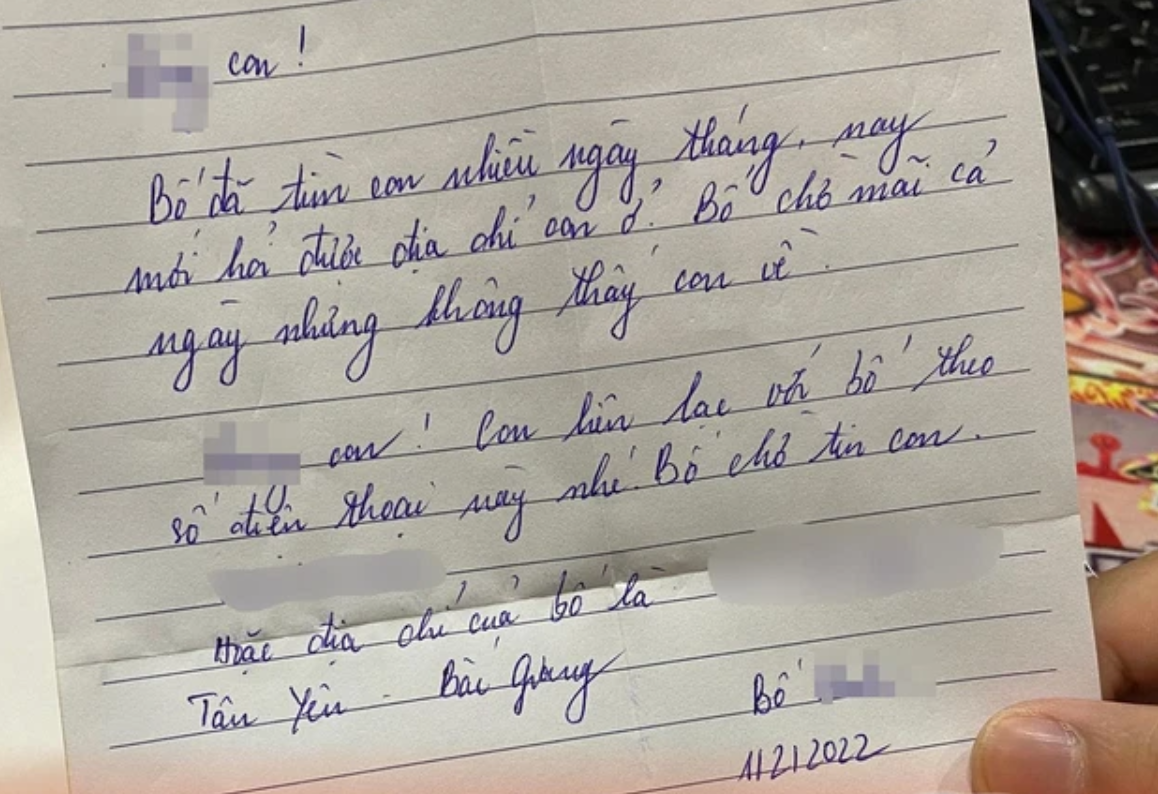 con !
Bố đã tìm con nhiều ngày tháng, nay
mới hỏi được địa chỉ con ở. Bố chờ mãi cả
ngày nhưng không thấy con về.
con ! Con liên lạc với bố theo
số điện thoại này nhé. Bố chờ tin con.
Hoặc địa chỉ của bố là
Tân Yên - Bắc Giang
Bố
11212022